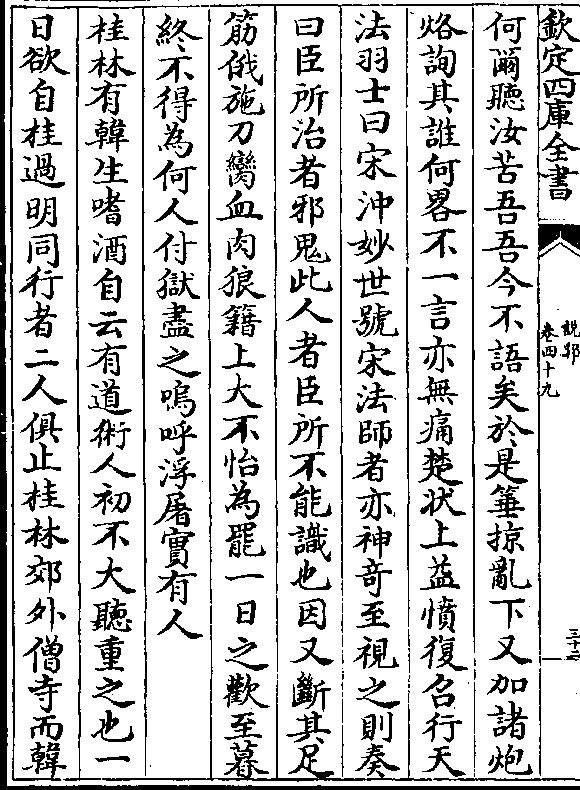 欽定四庫全書
說郛
卷四十九
三十二
何爾聽汝苦吾吾今不語矣於是箠掠亂下又加諸炮
烙詢其誰何畧不一言亦無痛楚狀上益憤復召行天
法羽士曰宋沖妙世號宋法師者亦神竒至視之則奏
曰臣所治者邪鬼此人者臣所不能識也因又斷其足
筋俄施刀臠血肉狼籍上大不怡為罷一日之歡至暮
終不得為何人付獄盡之嗚呼浮屠實有人
桂林有韓生嗜酒自云有道術人初不大聽重之也一
日欲自桂過明同行者二人俱止桂林郊外僧寺而韓